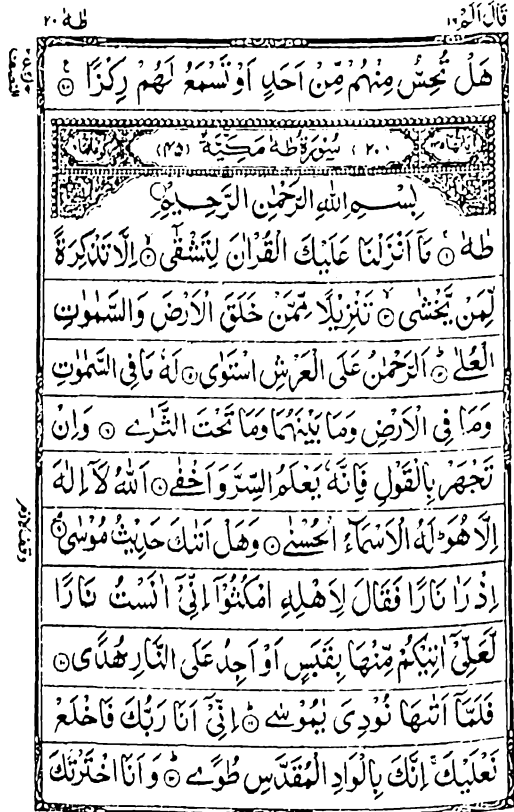 قَالَ اَلَمْ ١٦
طٰهٰ ٢٠
هَلْ تُحِسُّ مِنْهُمْ مِّنْ اَحَدٍ اَوْ تَسْمَعُ لَهُمْ رِكْزًا
(٢٠) سُوْرَةُ طٰهٰ مَكِّيَّةٌ (٤٥)
بِسْمِ اللّٰهِ الرَّحْمٰنِ الرَّحِيْمِ
طٰهٰ ۝١ مَآ اَنْزَلْنَا عَلَيْكَ الْقُرْاٰنَ لِتَشْقٰٓى ۝٢ اِلَّا تَذْكِرَةً
لِّمَنْ يَّخْشٰى ۝٣ تَنْزِيْلًا مِّمَّنْ خَلَقَ الْاَرْضَ وَالسَّمٰوٰتِ
الْعُلٰى ۝٤ اَلرَّحْمٰنُ عَلَى الْعَرْشِ اسْتَوٰى ۝٥ لَهٗ مَا فِى السَّمٰوٰتِ
وَمَا فِى الْاَرْضِ وَمَا بَيْنَهُمَا وَمَا تَحْتَ الثَّرٰى ۝٦ وَاِنْ
تَجْهَرْ بِالْقَوْلِ فَاِنَّهٗ يَعْلَمُ السِّرَّ وَاَخْفٰى ۝٧ اَللّٰهُ لَآ اِلٰهَ
اِلَّا هُوَ ؕ لَهُ الْاَسْمَآءُ الْحُسْنٰى ۝٨ وَهَلْ اَتٰىكَ حَدِيْثُ مُوْسٰى ۝٩
اِذْ رَاٰ نَارًا فَقَالَ لِاَهْلِهِ امْكُثُوْٓا اِنِّىْٓ اٰنَسْتُ نَارًا
لَّعَلِّىْٓ اٰتِيْكُمْ مِّنْهَا بِقَبَسٍ اَوْ اَجِدُ عَلَى النَّارِ هُدًى ۝١٠
فَلَمَّآ اَتٰىهَا نُوْدِىَ يٰمُوْسٰى ۝١١ اِنِّىْٓ اَنَا رَبُّكَ فَاخْلَعْ
نَعْلَيْكَ ۚ اِنَّكَ بِالْوَادِ الْمُقَدَّسِ طُوًى ۝١٢ وَاَنَا اخْتَرْتُكَ